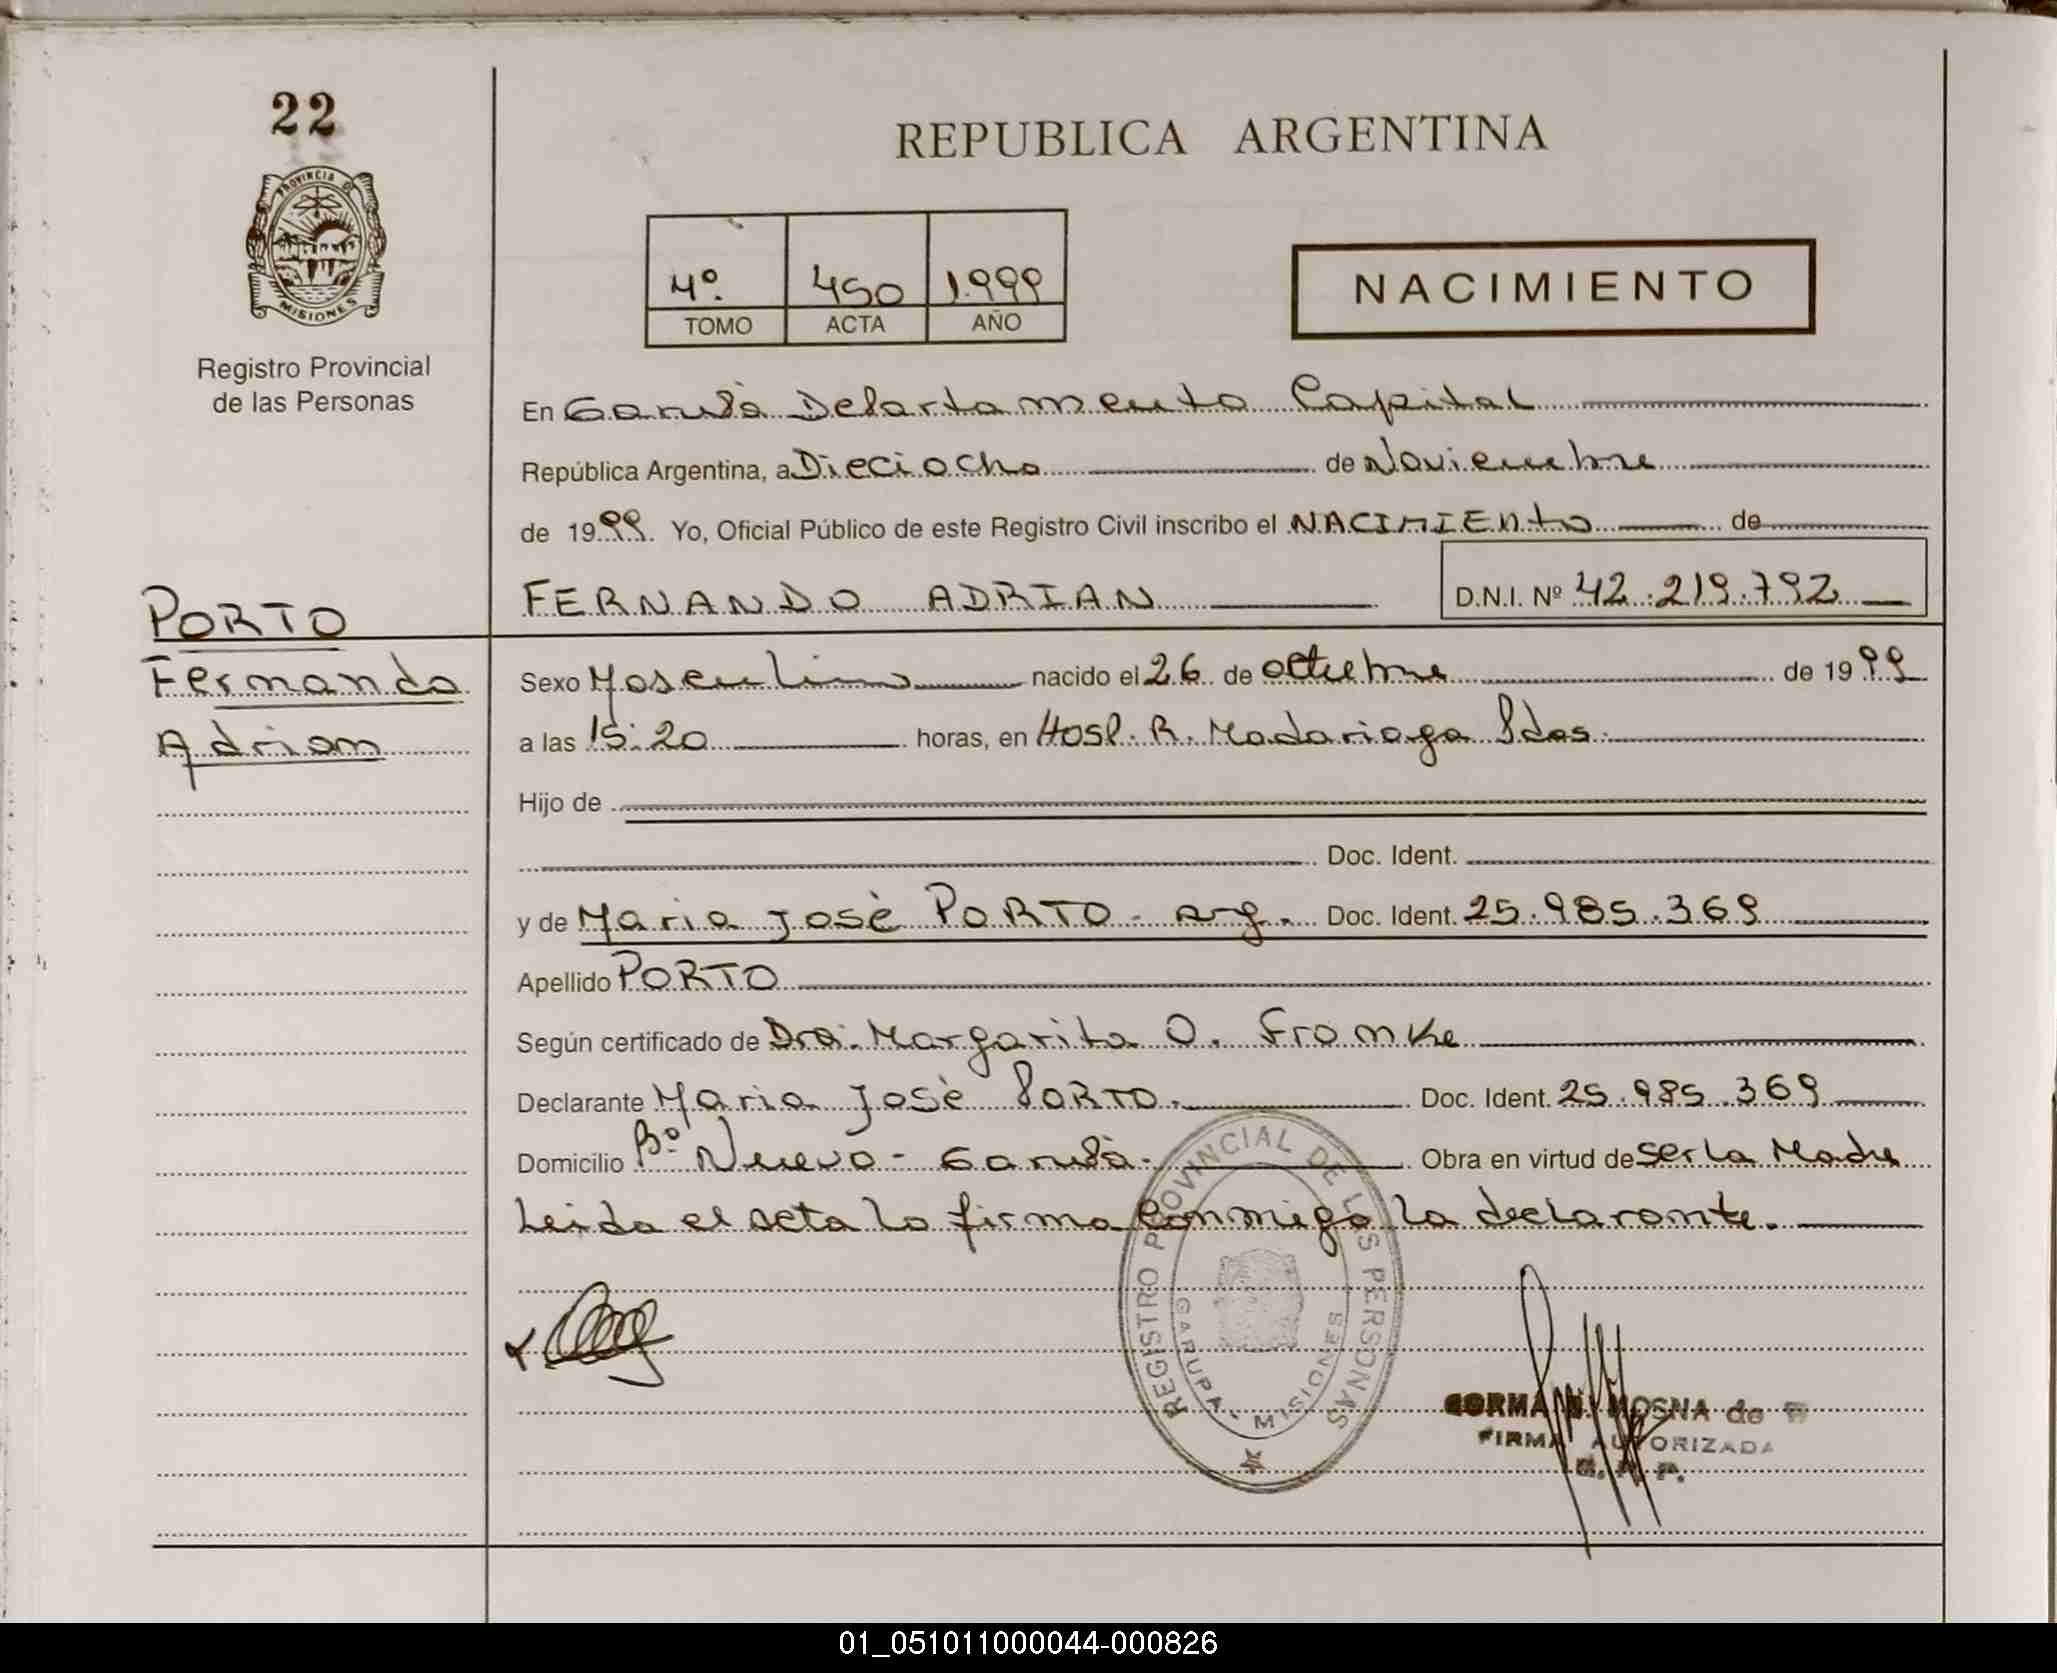 22
REPUBLICA ARGENTINA
PROVINCIA D
MISIONES
Registro Provincial
de las Personas
4º. 450 1.999
TOMO ACTA AÑO
NACIMIENTO
En Garupà Departamento Capital
República Argentina, a Dieciocho de Noviembre
de 1999. Yo, Oficial Público de este Registro Civil inscribo el NACIMIENto de
FERNANDO ADRIAN D.N.I. Nº 42.219.792
PORTO
Fernando
Adrian
Sexo Masculino nacido el 26 de octubre de 1999
a las 15:20 horas, en Hosp. R. Madariaga Pdas.
Hijo de
Doc. Ident.
y de Maria Josè PORTO - arg. Doc. Ident. 25.985.369
Apellido PORTO
Según certificado de Dra. Margarita O. Fromke
Declarante Maria Josè PORTO. Doc. Ident. 25.985.369
Domicilio Bº Nuevo - Garupà. Obra en virtud de ser la Madre
Leida el acta lo firma conmigo la declarante.
REGISTRO PROVINCIAL DE LAS PERSONAS
GARUPA - MISIONES
MOSNA de
FIRMA AUTORIZADA
01_051011000044-000826